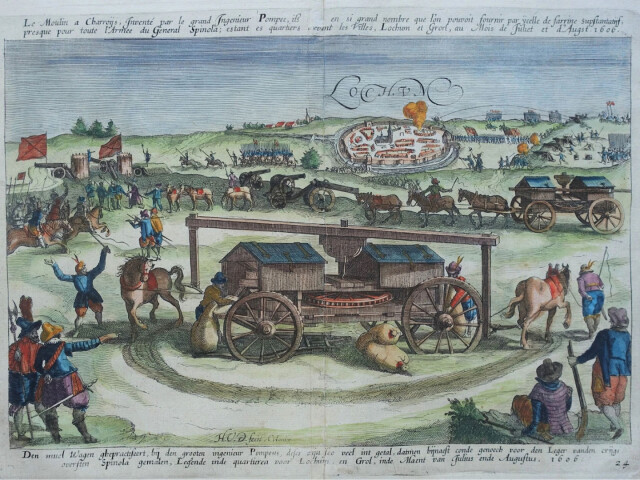 Le Moulin a Charrois, Inventé par le grand Ingenieur Pompeo, & en si grand nombre que l'on pouvoit fournir par ycelle de farrine
presque pour toute l'Armée du General Spinola; estant es quartiers devant les Villes, Lochum et Groll, au Mois de Juliet et d'Augst 1606.
LOCHVM
Den muel Wagen gepractiseert, bij den grooten ingenieur Pompeus, dese sijn soo veel int getal, datmen bijnaest conde genoech voor den Leger vanden
oversten Spinola gemalen, Leggende inde quartieren voor Lochum, en Grol, inde Maent van Julius ende Augustus, 1606.
24